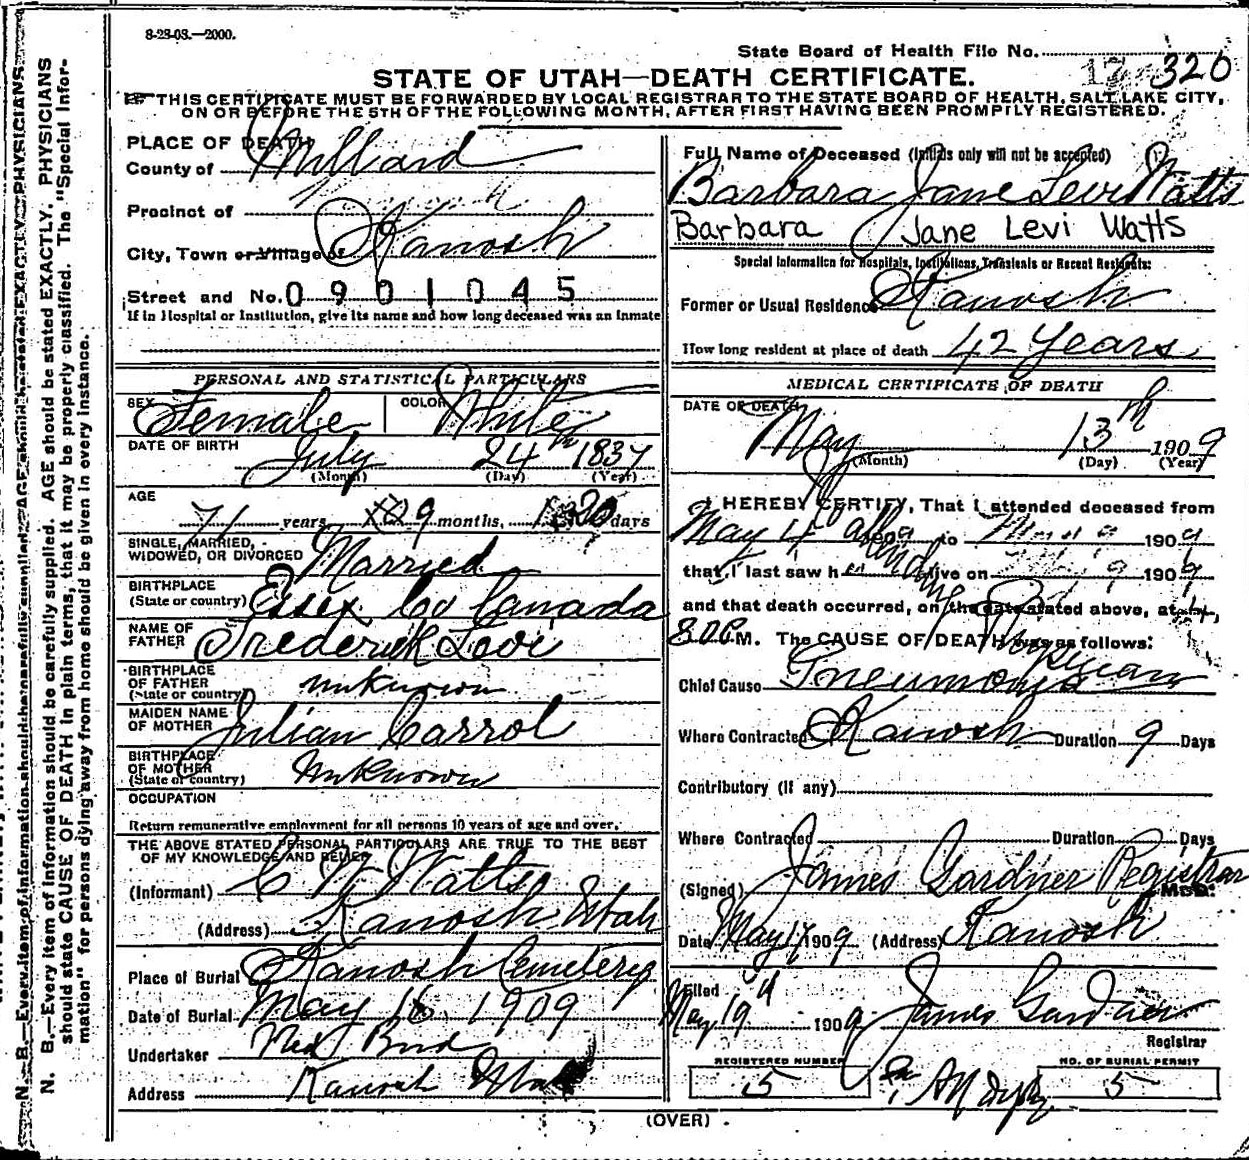 8-28-08.—2000.
State Board of Health File No. 320
STATE OF UTAH—DEATH CERTIFICATE.
THIS CERTIFICATE MUST BE FORWARDED BY LOCAL REGISTRAR TO THE STATE BOARD OF HEALTH, SALT LAKE CITY,
ON OR BEFORE THE 5TH OF THE FOLLOWING MONTH, AFTER FIRST HAVING BEEN PROMPTLY REGISTERED.
N. B.—Every item of information should be carefully supplied. AGE should be stated EXACTLY. PHYSICIANS
should state CAUSE OF DEATH in plain terms, that it may be properly classified. The "Special Infor-
mation" for persons dying away from home should be given in every instance.
PLACE OF DEATH
County of Millard
Precinct of
City, Town or Village of Kanosh
Street and No. 0901045
If in Hospital or Institution, give its name and how long deceased was an Inmate
PERSONAL AND STATISTICAL PARTICULARS
SEX Female COLOR White
DATE OF BIRTH July 24th 1837
(Month) (Day) (Year)
AGE
71 years 9 months, 20 days
SINGLE, MARRIED,
WIDOWED, OR DIVORCED Married
BIRTHPLACE
(State or country) Essex Co Canada
NAME OF
FATHER Frederick Levi
BIRTHPLACE
OF FATHER
(State or country) unknown
MAIDEN NAME
OF MOTHER Julian Carrol
BIRTHPLACE
OF MOTHER
(State or country) Unknown
OCCUPATION
Return remunerative employment for all persons 10 years of age and over.
THE ABOVE STATED PERSONAL PARTICULARS ARE TRUE TO THE BEST
OF MY KNOWLEDGE AND BELIEF
(Informant) C W Watts
(Address) Kanosh Utah
Place of Burial Kanosh Cemetery
Date of Burial May 16 1909
Undertaker Ned Bird
Address Kanosh Utah
Full Name of Deceased (Initials only will not be accepted)
Barbara Jane Levi Watts
Barbara Jane Levi Watts
Special Information for Hospitals, Institutions, Transients or Recent Residents:
Former or Usual Residence Kanosh
How long resident at place of death 42 Years
MEDICAL CERTIFICATE OF DEATH
DATE OF DEATH
May 13th 1909
(Month) (Day) (Year)
I HEREBY CERTIFY, That I attended deceased from
May 4 1909 to May 9 1909
that I last saw her alive on 9 1909
and that death occurred, on the date stated above, at
M. The CAUSE OF DEATH was as follows:
Chief Cause Pneumonia
Where Contracted Kanosh Duration 9 Days
Contributory (if any)
Where Contracted Duration Days
(Signed) James Gardner Registrar
Date May 17 1909 (Address) Kanosh
Filed
May 19 1909 James Gardner
Registrar
REGISTERED NUMBER
5
NO. OF BURIAL PERMIT
5
(OVER)